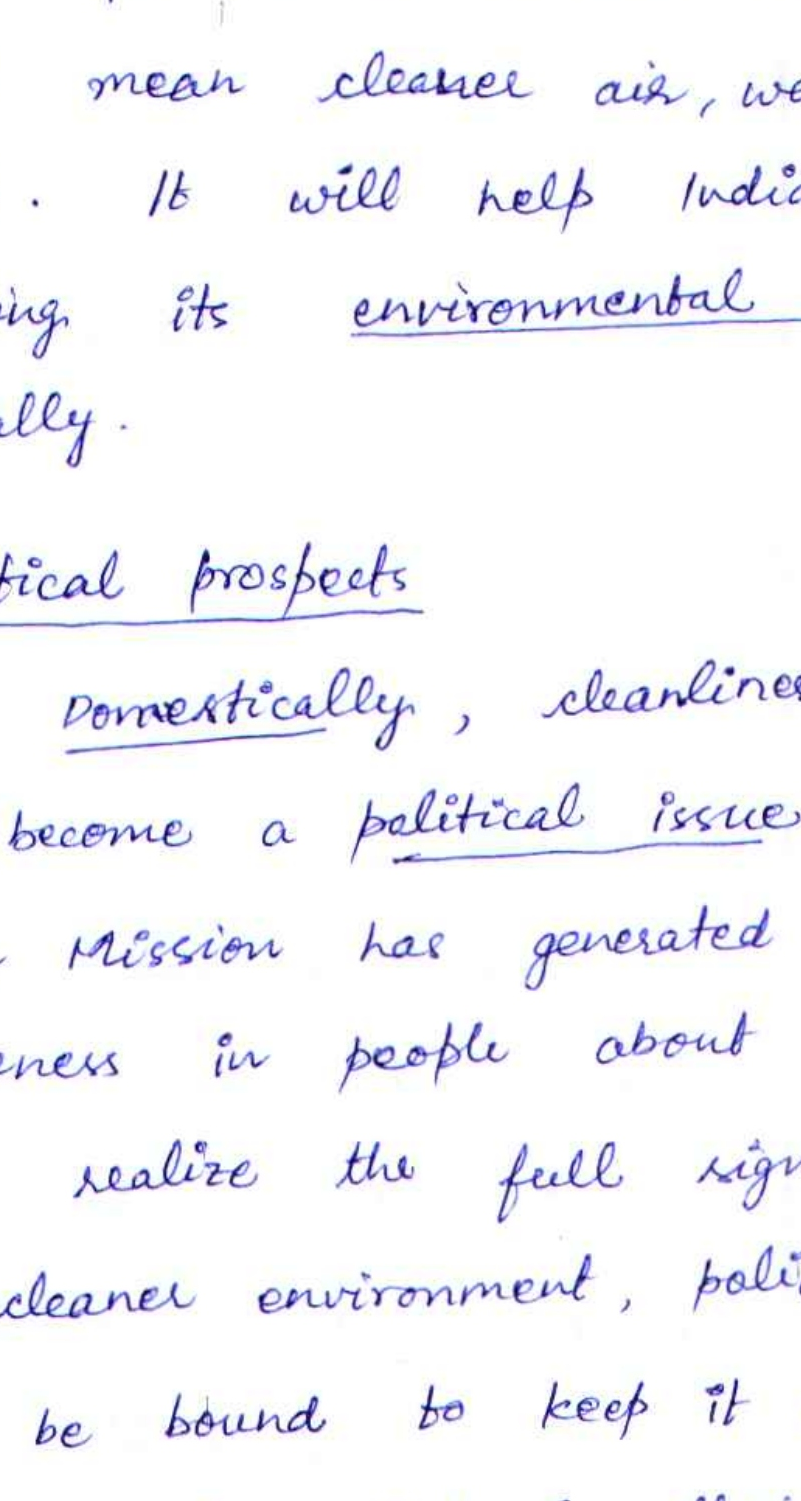 mean cleaner air, we
. It will help India
ing its environmental
ally.
tical prospects
Domestically, cleanlines
become a political issue
Mission has generated
eness in people about
realize the full sign
cleaner environment, poli
be bound to keep it